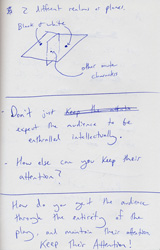 2 different realms or planes.
Black & white
other main
character
- Don't just keep the
expect the audience to be
enthralled intellectually.
- How else can you keep their
attention?
How do you get the audience
through the entirety of the
play, and maintain their attention.
Keep their Attention!